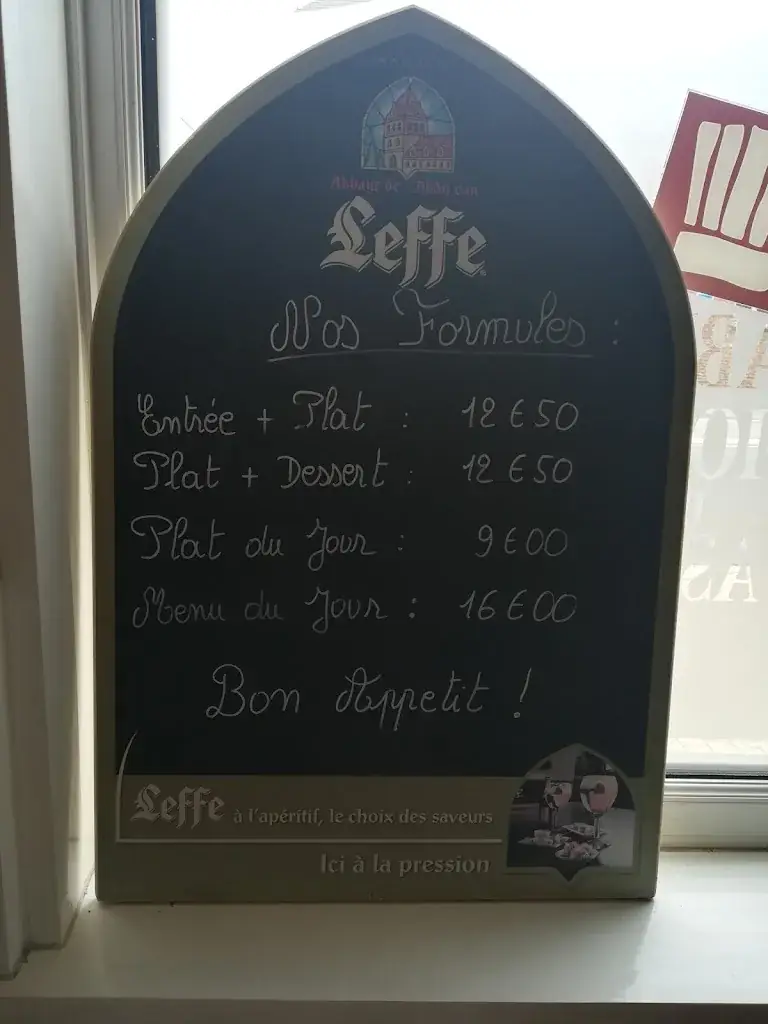 Abbaye de Abdij van
Leffe
Nos Formules :
Entrée + Plat : 12€50
Plat + Dessert : 12€50
Plat du Jour : 9€00
Menu du Jour : 16€00
Bon Appetit !
Leffe à l'apéritif, le choix des saveurs
Ici à la pression